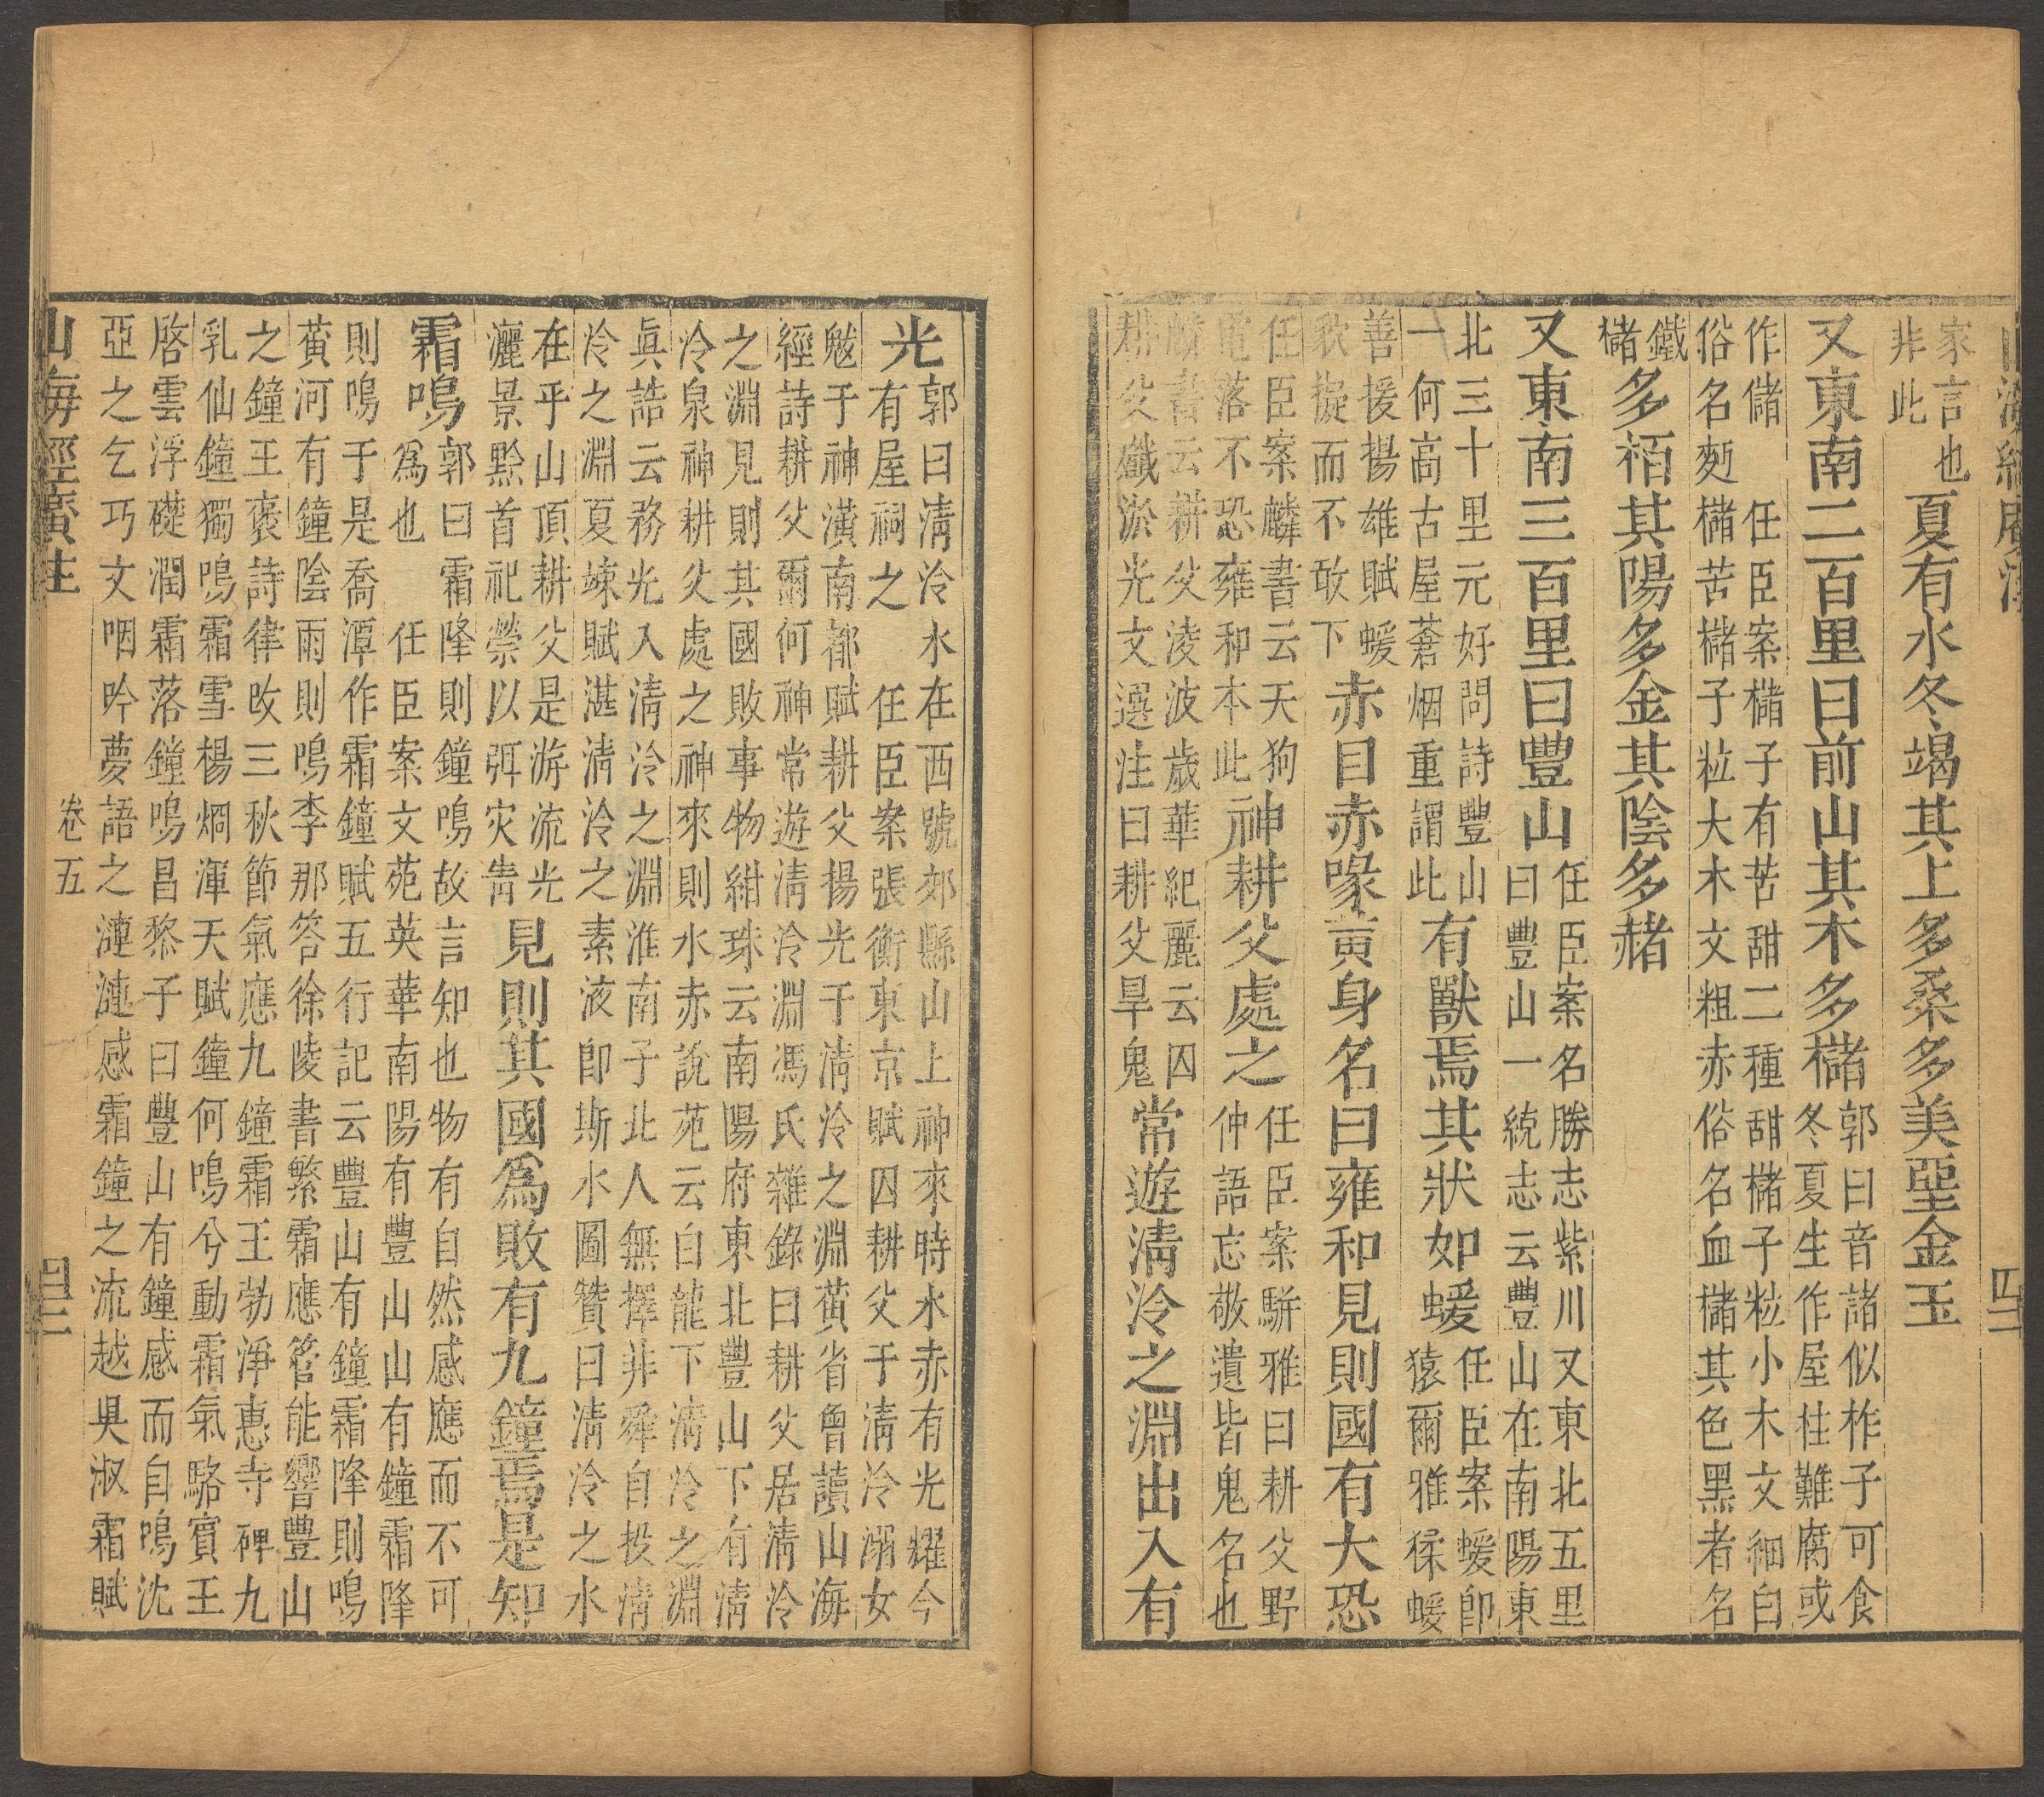 家言也
非此
夏有水冬竭其上多桑多美堊金玉
又東南二百里曰前山其木多櫧
郭曰音諸似柞子可食
冬夏生作屋柱難腐或
作儲　任臣案櫧子有苦甜二種甜櫧子粒小木文細白
俗名麪櫧苦櫧子粒大木文粗赤俗名血櫧其色黑者名
鐵
櫧
多栢其陽多金其陰多赭
又東南三百里曰豐山
任臣案名勝志紫川又東北五里
曰豐山一統志云豐山在南陽東
北三十里元好問詩豐山
一何高古屋蒼烟重謂此
有獸焉其狀如蝯
任臣案蝯即
猿爾雅猱蝯
善援揚雄賦蝯
㰤擬而不敢下
赤目赤喙黃身名曰雍和見則國有大恐
任臣案麟書云天狗
電落不恐雍和本此
神耕父處之
任臣案駢雅曰耕父野
仲語忘敬遺皆鬼名也
麟書云耕父淩波歲華紀麗云囚
耕父殲淤光文選注曰耕父旱鬼
常遊淸泠之淵出入有
四二
光
郭曰淸泠水在西號郊縣山上神來時水赤有光耀今
有屋祠之　任臣案張衡東京賦囚耕父于淸泠溺女
魃于神潢南都賦耕父揚光于淸泠之淵黃省曾讀山海
經詩耕父爾何神常遊淸泠淵馮氏雜錄曰耕父居淸泠
之淵見則其國敗事物紺珠云南陽府東北豐山下有淸
泠泉神耕父處之神來則水赤說苑云白龍下淸泠之淵
眞誥云務光入淸泠之淵淮南子北人無擇非舜自投淸
泠之淵夏竦賦湛淸泠之素液即斯水圖贊曰淸泠之水
在乎山頂耕父是游流光
灑景黔首祀禜以弭灾眚
見則其國爲敗有九鐘焉是知
霜鳴
郭曰霜降則鐘鳴故言知也物有自然感應而不可
爲也　任臣案文苑英華南陽有豐山山有鐘霜降
則鳴于是喬潭作霜鐘賦五行記云豐山有鐘霜降則鳴
黃河有鐘陰雨則鳴李那答徐陵書繁霜應管能響豐山
之鐘王褒詩律改三秋節氣應九鐘霜王勃淨惠寺碑九
乳仙鐘獨鳴霜雪楊烱渾天賦鐘何鳴兮動霜氣駱賓王
啓雲浮礎潤霜落鐘鳴昌黎子曰豐山有鐘感而自鳴沈
亞之乞巧文咽吟夢語之漣漣感霜鐘之流越吳淑霜賦
山海經廣注
卷五
四二